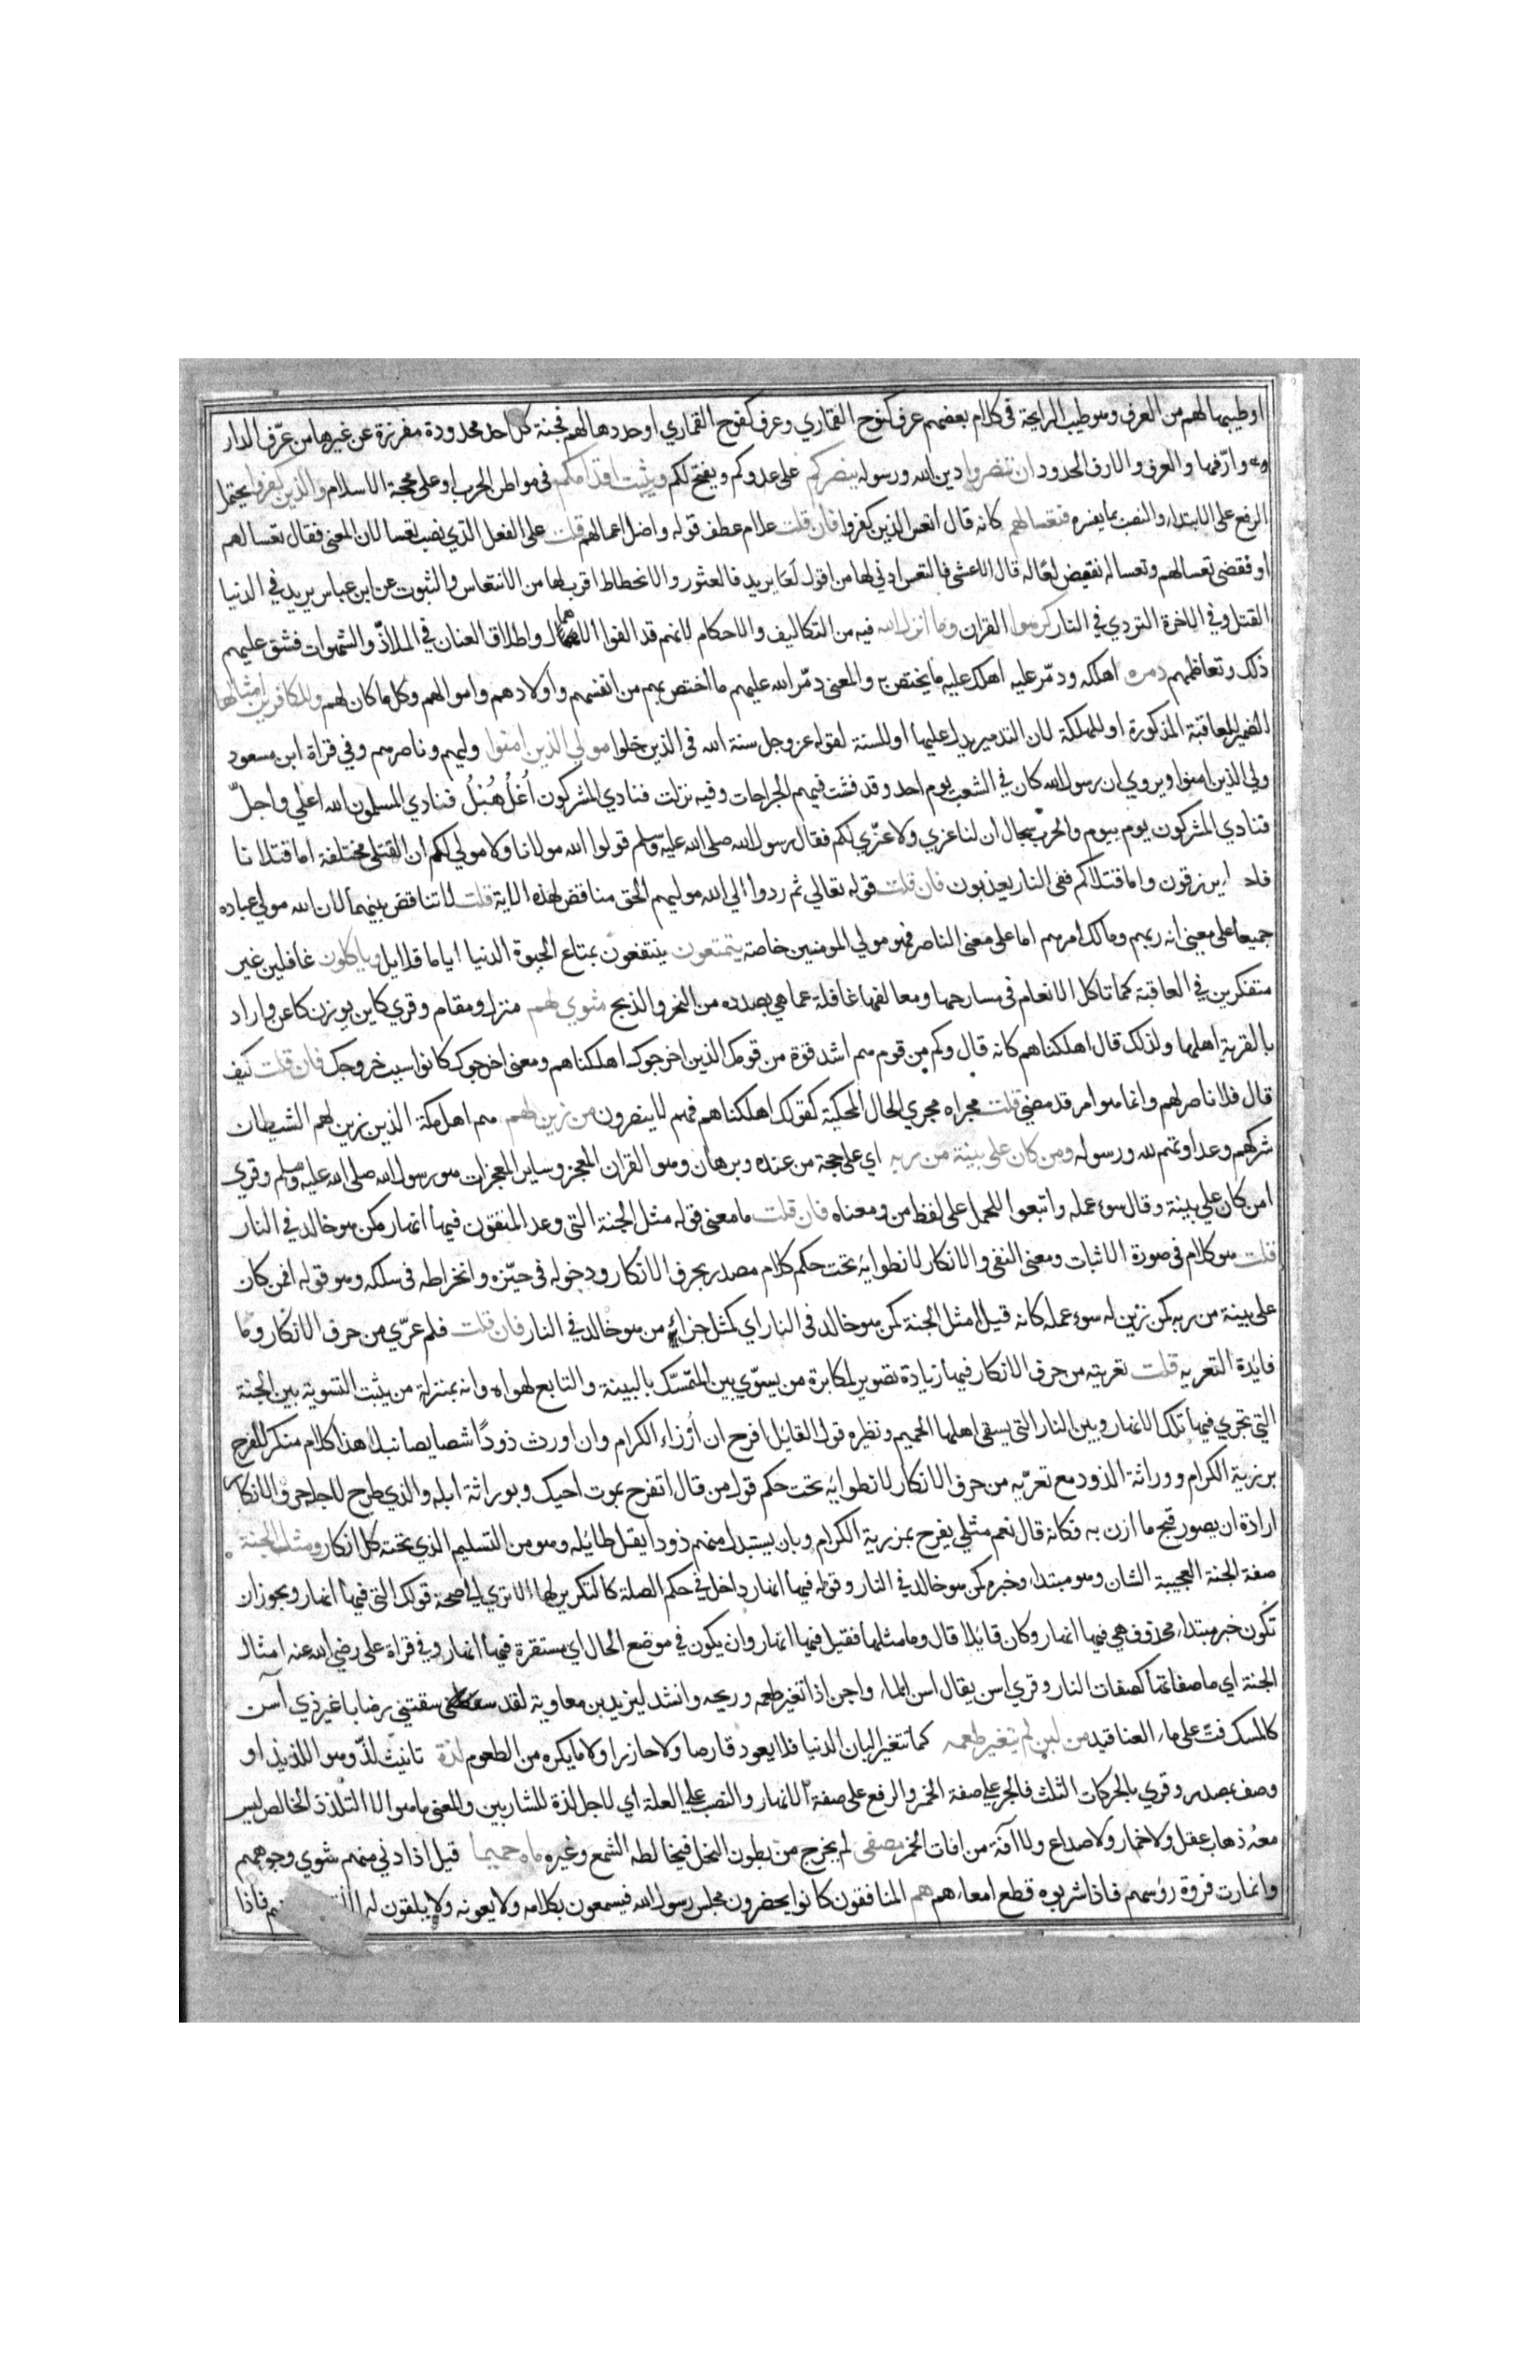 او طيبها لهم من العرف وهو طيب الرايحة في كلام بعضهم عرف كنوح القماري وعرف كفوح القماري او حددها لهم فجنة كل احد محدودة مفرزة عن غيرها من عرّف الدار
وارّفها والعرف والارف الحدود ان تنصروا دين الله ورسوله ينصركم على عدوكم ويفتح لكم ويثبت اقدامكم في مواطن الحرب او على محجة الاسلام والذين كفروا يحتمل
الرفع على الابتداء والنصب بما يفسره فتعسا لهم كانه قال اتعس الذين كفروا فان قلت علام عطف قوله واضل اعمالهم قلت على الفعل الذي نصب تعسا لان المعنى فقال تعسا لهم
او فقضى تعسا لهم وتعسا له نقيض لعًا له قال الاعشى فالتعس ادنى لها من اقول لعًا يريد فالعثور والانحطاط اقرب لها من الانتعاش والثبوت عن ابن عباس يريد في الدنيا
القتل وفي الاخرة التردي في النار كرهوا القران وما انزل الله فيه من التكاليف والاحكام لانهم قد الفوا الاهمال واطلاق العنان في الملاذّ والشهوات فشق عليهم
ذلك وتعاظمهم دمره اهلكه ودمّر عليه اهلك عليه ما يختص به والمعنى دمّر الله عليهم ما اختص بهم من انفسهم واولادهم واموالهم وكل ما كان لهم وللكافرين امثالها
الضمير للعاقبة المذكورة او للهلكة لان التدمير يدل عليها او للسنة لقوله عز وجل سنة الله في الذين خلوا مولى الذين امنوا وليهم وناصرهم وفي قراة ابن مسعود
ولي الذين امنوا ويروي ان رسول الله كان في الشعب يوم احد وقد فشت فيهم الجراحات وفيه نزلت فنادي المشركون اُعْلُ هُبَلُ فنادي المسلمون الله اعلي واجلّ
فنادي المشركون يوم بيوم والحرب سجال ان لنا عزي ولا عزّي لكم فقال رسول الله صلى الله عليه وسلم قولوا الله مولانا ولا مولي لكم ان القتلي مختلفة اما قتلانا
فاحيا يرزقون واما قتلاكم ففي النار يعذبون فان قلت قوله تعالي ثم ردوا الي الله موليهم الحق مناقض لهذه الاية قلت لا تناقض بينهما لان الله مولي عباده
جميعا على معنى انه ربهم ومالك امرهم اما على معنى الناصر فهو مولي المومنين خاصة يتمتعون ينتفعون بمتاع الحيوة الدنيا اياما قلايل وياكلون غافلين غير
متفكرين في العاقبة كما تاكل الانعام في مسارحها ومعالفها غافلة عما هي بصدده من النحر والذبح مثوي لهم منزل ومقام وقري كاين بوزن كاعن واراد
بالقرية اهلها ولذلك قال اهلكناهم كانه قال وكم من قوم هم اشد قوة من قومك الذين اخرجوك اهلكناهم ومعنى اخرجوك كانوا سبب خروجك فان قلت كيف
قال فلا ناصر لهم وانما هو امر قد مضى قلت مجراه مجري الحال المحكية كقولك اهلكناهم فهم لا ينصرون من زين لهم هم اهل مكة الذين زين لهم الشيطان
شركهم وعداوتهم لله ورسوله ومن كان على بينة من ربه اي على حجة من عنده وبرهان وهو القران المعجز وساير المعجزات هو رسول الله صلى الله عليه وسلم وقري
امن كان علي بينة وقال سوء عمله واتبعوا للحمل على لفظ من ومعناه فان قلت ما معنى قوله مثل الجنة التي وعد المتقون فيها انهار كمن هو خالد في النار
قلت هو كلام في صورة الاثبات ومعنى النفي والانكار لانطوائه تحت حكم كلام مصدر بحرف الانكار ودخوله في حيّزه وانخراطه في سلكه وهو قوله افمن كان
على بينة من ربه كمن زين له سوء عمله كانه قيل امثل الجنة كمن هو خالد في النار اي كمثل جزاء من هو خالد في النار فان قلت فلم عرّي من حرف الانكار وما
فايدة التعرية قلت تعريته من حرف الانكار فيها زيادة تصوير لمكابرة من يسوّي بين المتمسّك بالبينة والتابع لهواه وانه بمنزلة من يثبت التسوية بين الجنة
التي تجري فيها تلك الانهار وبين النار التي يسقى اهلها الحميم ونظيره قول القايل افرح ان اُرْزاء الكرام وان اورث ذودًا شصايصا نبلا هذا كلام منكر للفرح
برزية الكرام ووراثة الذود مع تعرّيه من حرف الانكار لانطوائه تحت حكم قول من قال اتفرح بموت اخيك وبوراثة ابله والذي طرح لاجله حرف الانكار
ارادة ان يصور قبح ما ازن به فكانه قال نعم مثلي يفرح بمرزية الكرام وبان يستبدل منهم ذودا يقل طائله وهو من التسليم الذي تحته كل انكار ومثل الجنة
صفة الجنة العجيبة الشان وهو مبتداء وخبره كمن هو خالد في النار وقوله فيها انهار داخل في حكم الصلة كالتكرير لها الا تري الى صحة قولك التي فيها انهار ويجوز ان
تكون خبر مبتداء محذوف هي فيها انهار وكان قايلا قال وما مثلها فقيل فيها انهار وان يكون في موضع الحال اي مستقرة فيها انهار وفي قراة على رضي الله عنه امثال
الجنة اي ما صفاتها كصفات النار وقري اسن يقال اسن الماء واجن اذا تغير طعمه وريحه وانشد ليزيد بن معاوية لقد سقتني رضابا غير ذي آسن
كالمسك فتّ على ماء العناقيد من لبن لم يتغير طعمه كما تتغير البان الدنيا فلا يعود قارصا ولا حازرا ولا ما يكره من الطعوم لذة تانيث لذّ وهو اللذيذ او
وصف بمصدر وقري بالحركات الثلث فالجر علي صفة الخمر والرفع على صفة الانهار والنصب علي العلة اي لاجل لذة للشاربين والمعنى ما هو الا التلذذ الخالص ليس
معه ذهاب عقل ولا خمار ولا صداع ولا آفة من افات الخمر مصفى لم يخرج من بطون النحل فيخالطه الشمع وغيره ماء حميما قيل اذا دني منهم شوي وجوههم
وانمارت فروة رؤسهم فاذا شربوه قطع امعاءهم هم المنافقون كانوا يحضرون مجلس رسول الله فيسمعون كلامه ولا يعونه ولا يلقون له فاذا